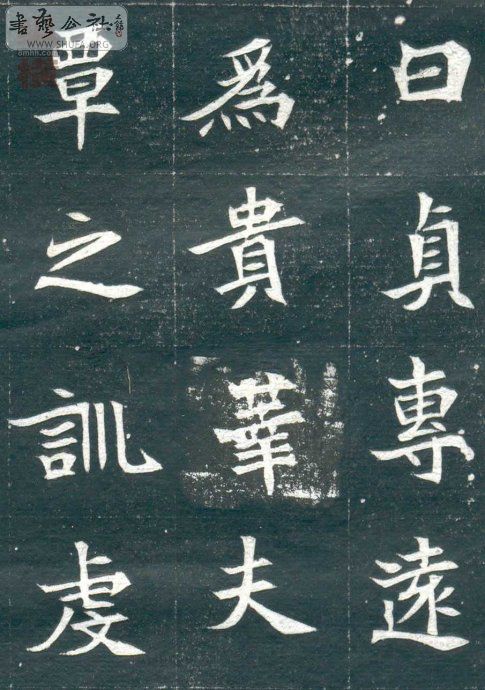 曰貞專遠
爲貴華夫
覃之訓虔
書藝公社
WWW.SHUFA.ORG